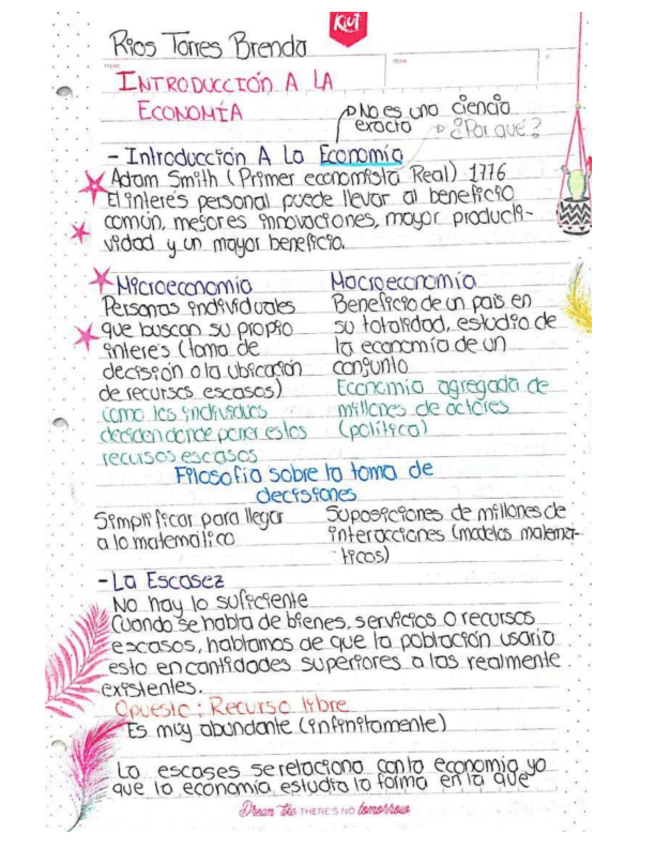 Kiut
Rios Torres Brenda
INTRODUCCIÓN A LA
ECONOMÍA
No es una ciencia
exacta
¿Por qué?
- Introducción A La Economía
Adam Smith (Primer economista Real) 1776
El interés personal puede llevar al beneficio
común, mejores innovaciones, mayor producti-
vidad y un mayor beneficio.
Microeconomía
Personas individuales
que buscan su propio
interés (toma de
decisión a la ubicación
de recursos escasos)
como los individuos
deciden donde poner estos
recursos escasos
Macroeconomía
Beneficio de un país en
su totalidad, estudio de
la economía de un
conjunto
Economía agregada de
millones de actores
(política)
Filosofía sobre la toma de
decisiones
Simplificar para llegar
a lo matemático
Suposiciones de millones de
interacciones (modelos matemá-
ticos)
- La Escasez
No hay lo suficiente
Cuando se habla de bienes, servicios o recursos
escasos, hablamos de que la población usaria
esto en cantidades superiores a las realmente
existentes.
Opuesto: Recurso libre
Es muy abundante (infinitamente)
La escases se relaciona con la economía ya
que la economía estudia la forma en la que
Dream like THERE'S NO tomorrow